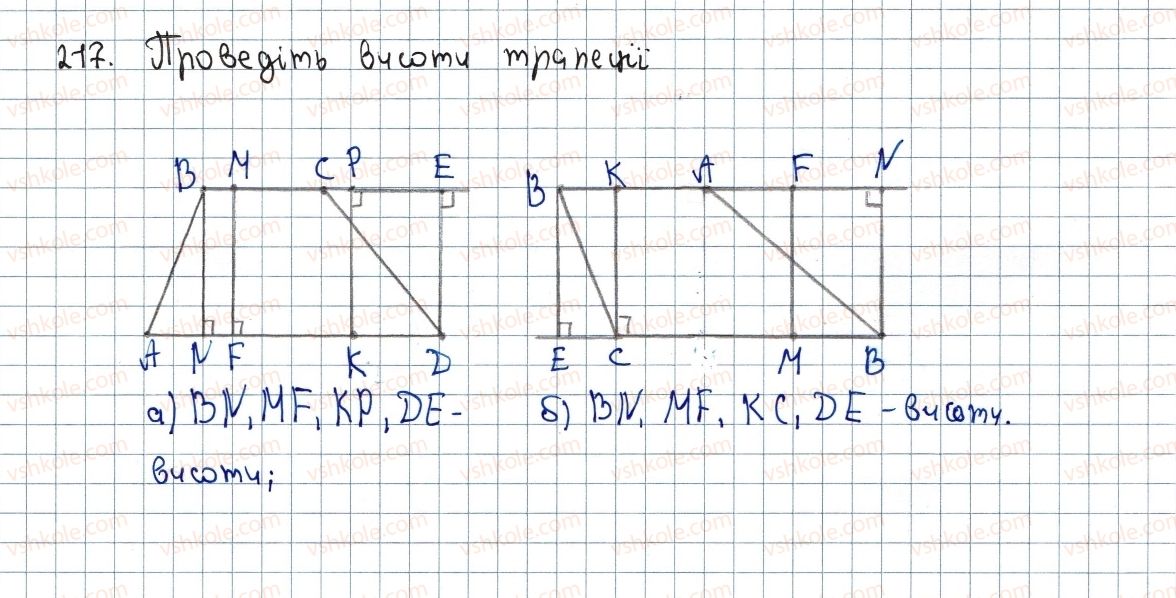 217. Проведіть висоти трапеції
B M C P E B K A F N
A N F K D E C M B
а) BN, MF, KP, DE - б) BN, MF, KC, DE - висоти.
висоти;